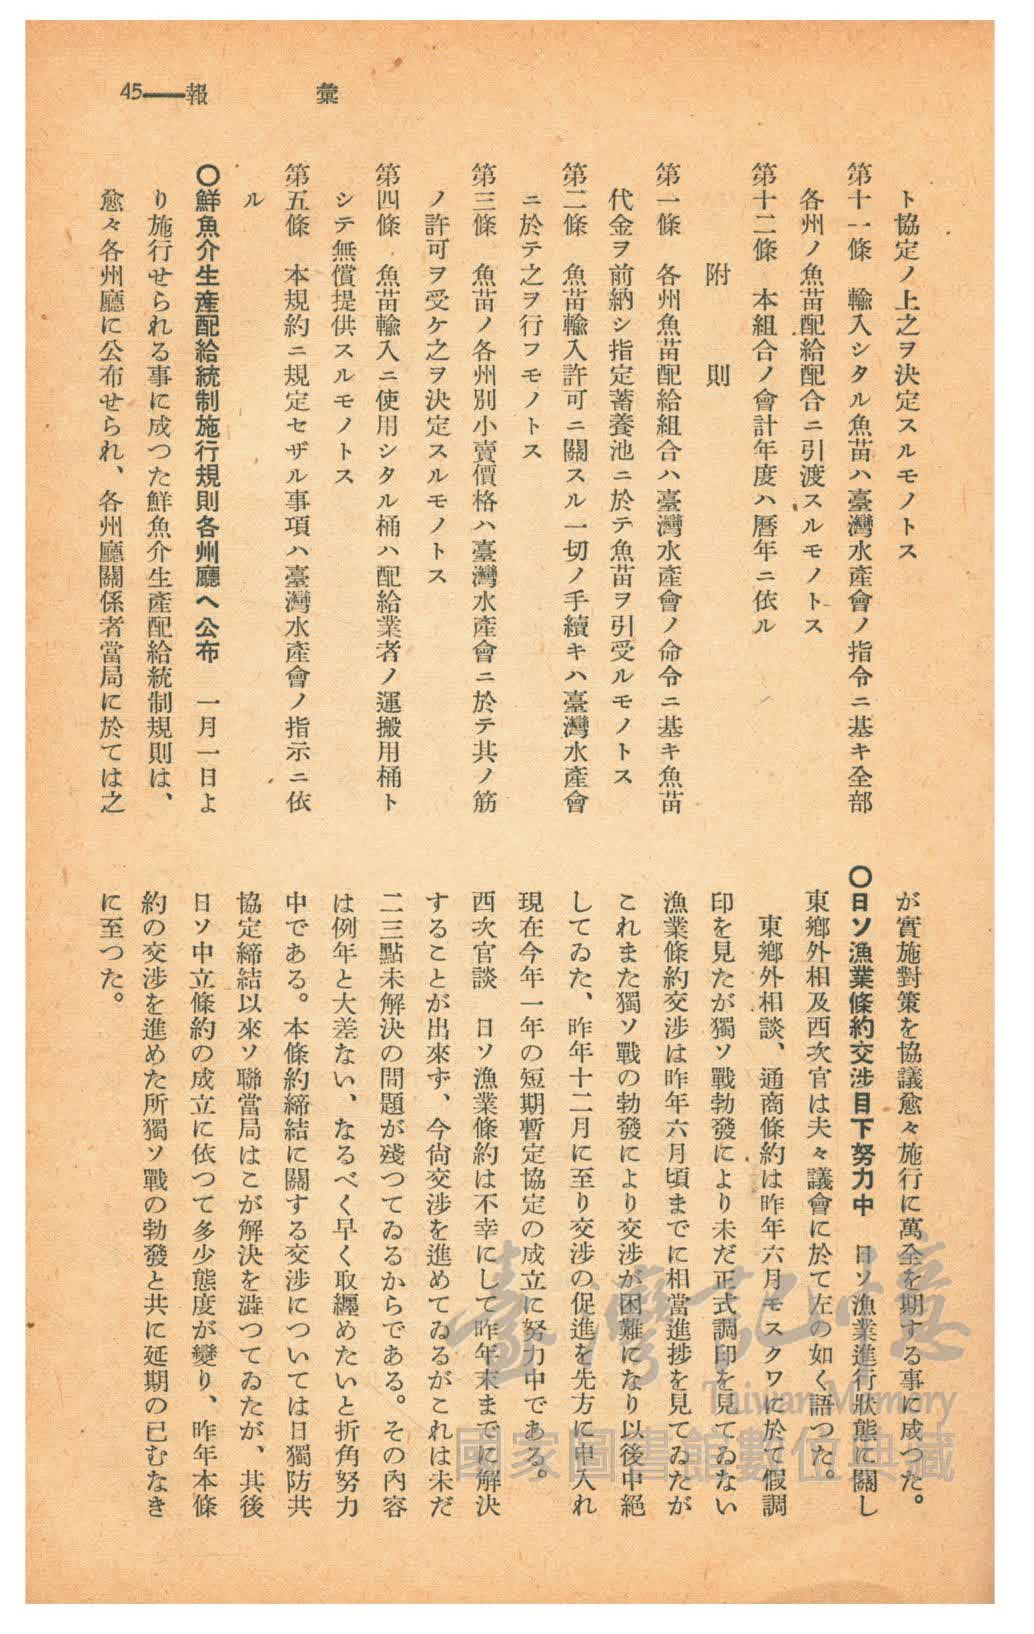 45——報彙
ト協定ノ上之ヲ決定スルモノトス
第十一條　輸入シタル魚苗ハ臺灣水產會ノ指令ニ基キ全部
各州ノ魚苗配給配合ニ引渡スルモノトス
第十二條　本組合ノ會計年度ハ曆年ニ依ル
附　則
第一條　各州魚苗配給組合ハ臺灣水產會ノ命令ニ基キ魚苗
代金ヲ前納シ指定蓄養池ニ於テ魚苗ヲ引受ルモノトス
第二條　魚苗輸入許可ニ關スル一切ノ手續キハ臺灣水產會
ニ於テ之ヲ行フモノトス
第三條　魚苗ノ各州別小賣價格ハ臺灣水產會ニ於テ其ノ筋
ノ許可ヲ受ケ之ヲ決定スルモノトス
第四條　魚苗輸入ニ使用シタル桶ハ配給業者ノ運搬用桶ト
シテ無償提供スルモノトス
第五條　本規約ニ規定セザル事項ハ臺灣水產會ノ指示ニ依
ル
〇鮮魚介生產配給統制施行規則各州廳へ公布　一月一日よ
り施行せられる事に成つた鮮魚介生產配給統制規則は、
愈々各州廳に公布せられ、各州廳關係者當局に於ては之
が實施對策を協議愈々施行に萬全を期する事に成つた。
〇日ソ漁業條約交涉目下努力中　日ソ漁業進行狀態に關し
東鄉外相及西次官は夫々議會に於て左の如く語つた。
東鄉外相談、通商條約は昨年六月モスクワに於て假調
印を見たが獨ソ戰勃發により未だ正式調印を見てゐない
漁業條約交涉は昨年六月頃までに相當進捗を見てゐたが
これまた獨ソ戰の勃發により交涉が困難になり以後中絕
してゐた、昨年十二月に至り交涉の促進を先方に申入れ
現在今年一年の短期暫定協定の成立に努力中である。
西次官談　日ソ漁業條約は不幸にして昨年末までに解決
することが出來ず、今尙交涉を進めてゐるがこれは未だ
二三點未解決の問題が殘つてゐるからである。その內容
は例年と大差ない、なるべく早く取纒めたいと折角努力
中である。本條約締結に關する交涉については日獨防共
協定締結以來ソ聯當局はこが解決を澁つてゐたが、其後
日ソ中立條約の成立に依つて多少態度が變り、昨年本條
約の交涉を進めた所獨ソ戰の勃發と共に延期の已むなき
に至つた。
臺灣記憶
Taiwan Memory
國家圖書館數位典藏